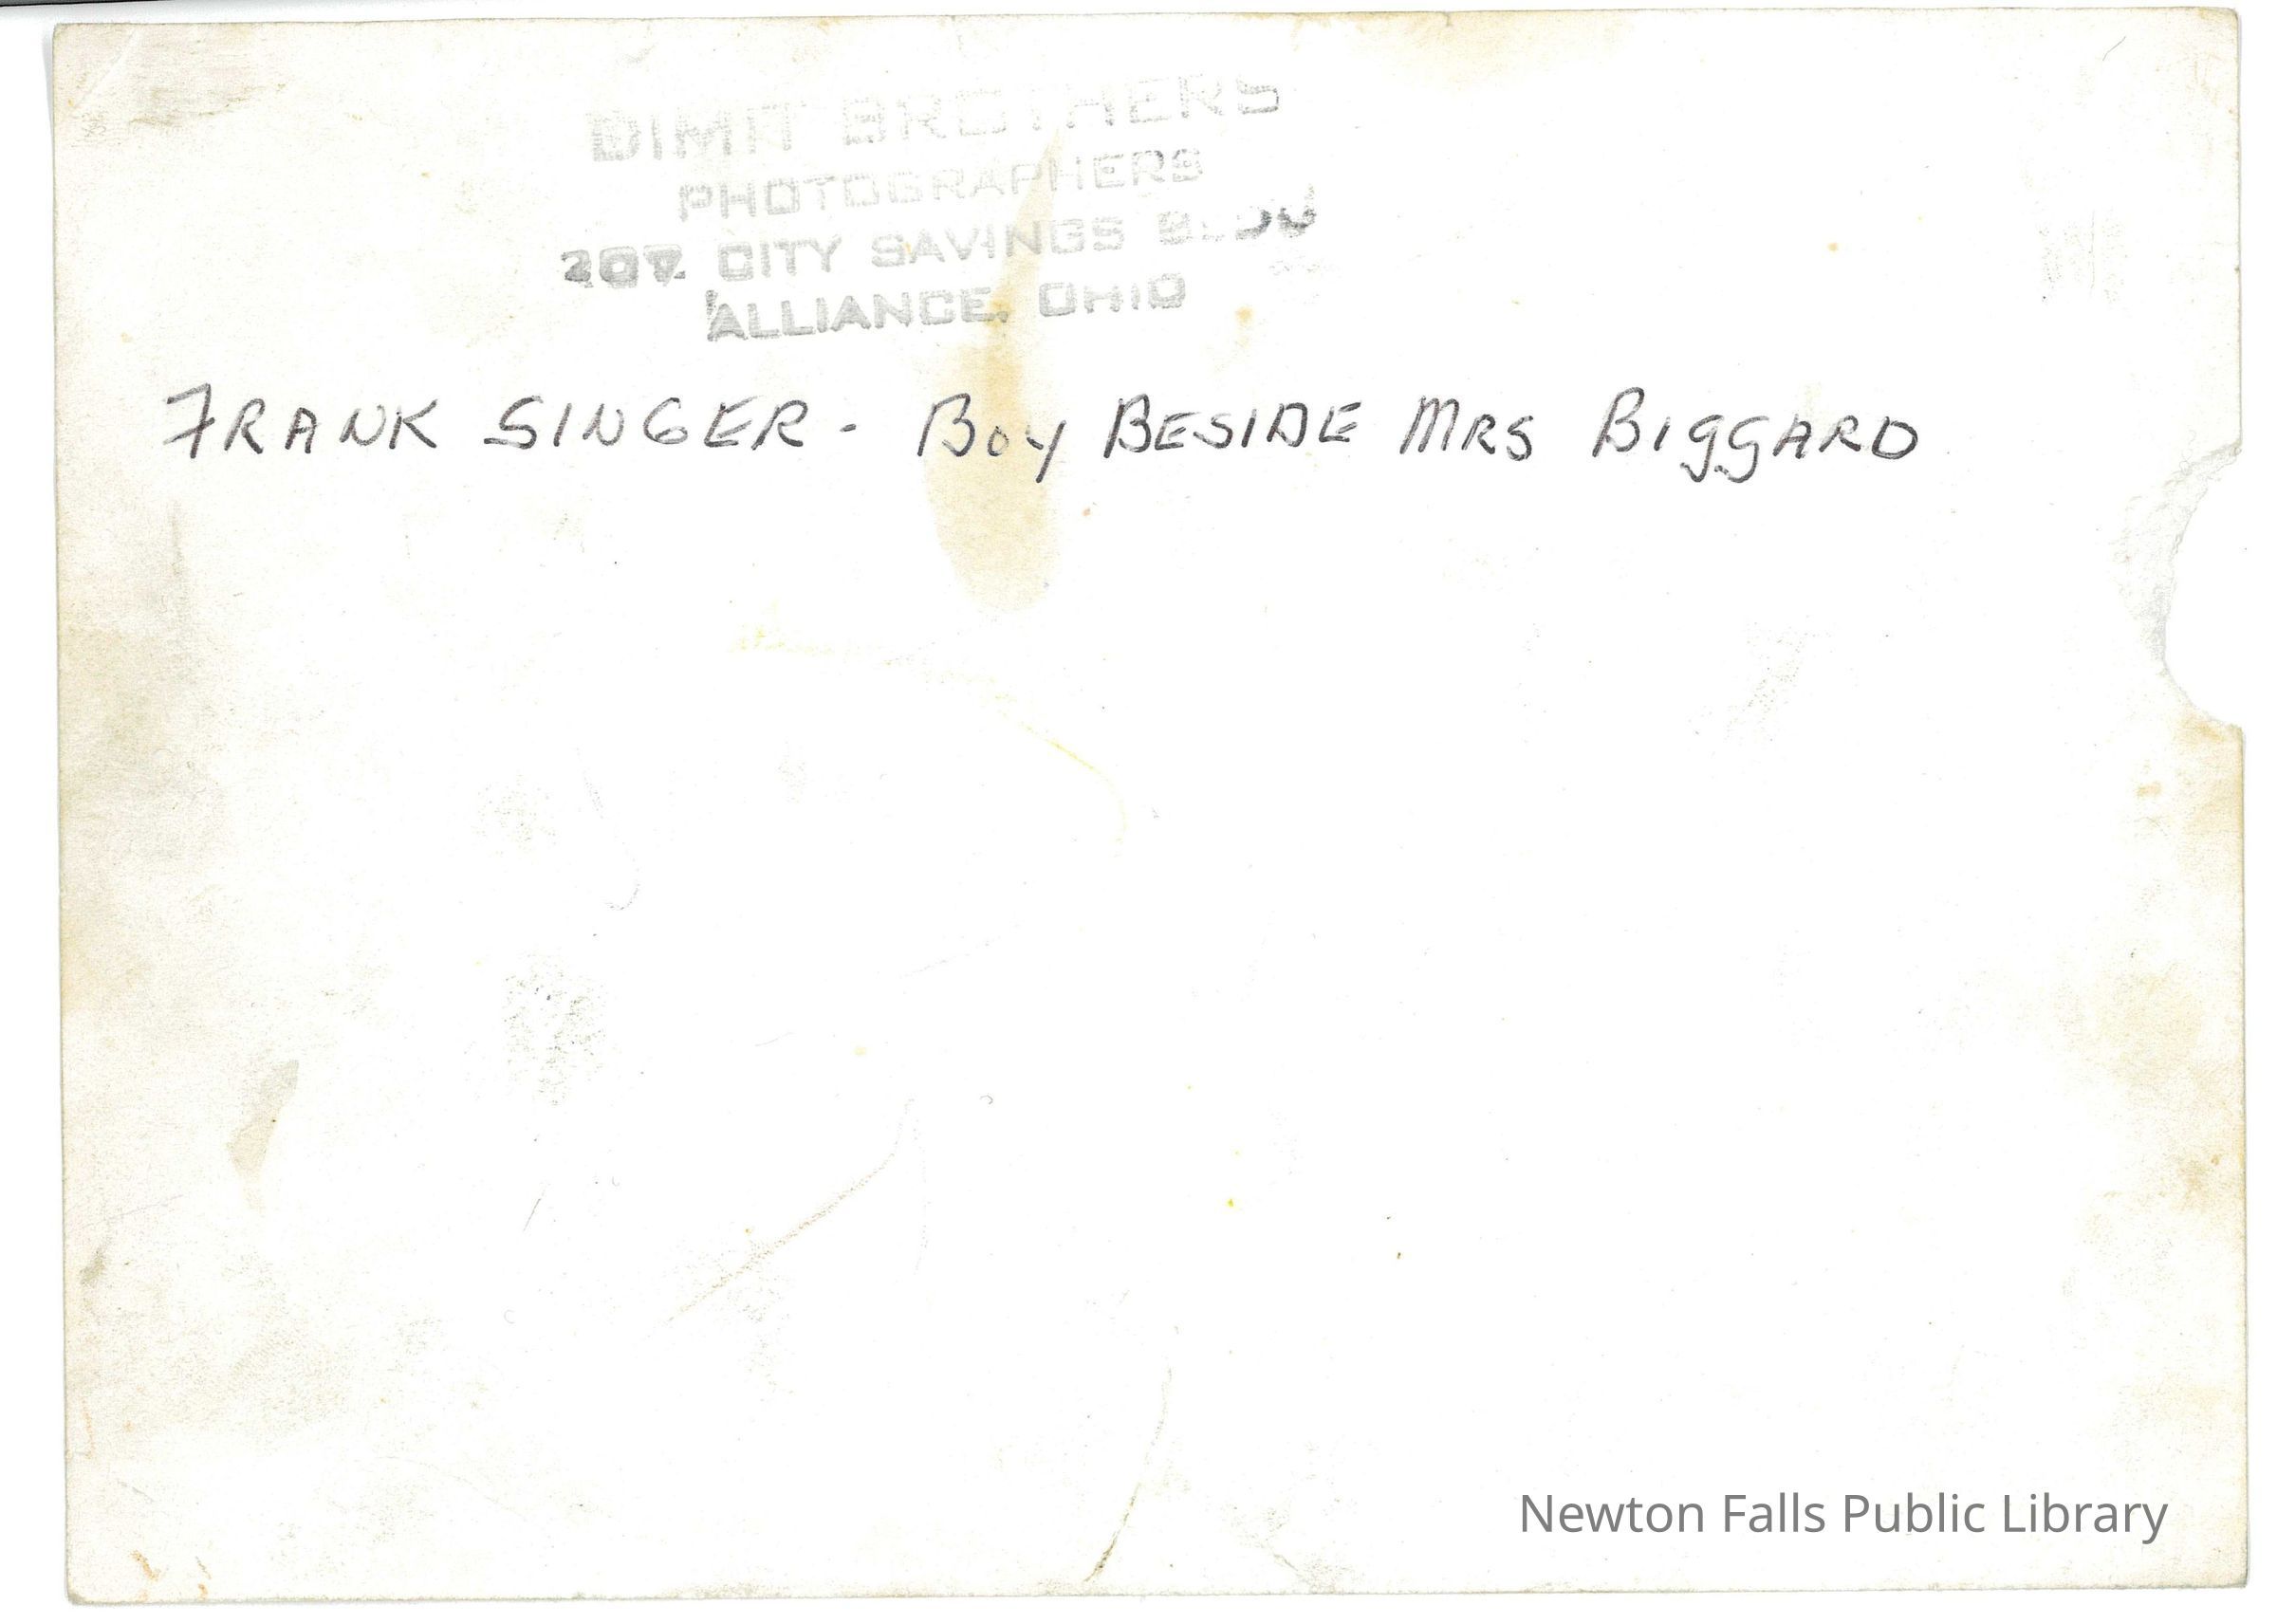 DIMIT BROTHERS
PHOTOGRAPHERS
207 CITY SAVINGS BLDG
ALLIANCE, OHIO
FRANK SINGER - BOY BESIDE MRS BIGGARD
Newton Falls Public Library